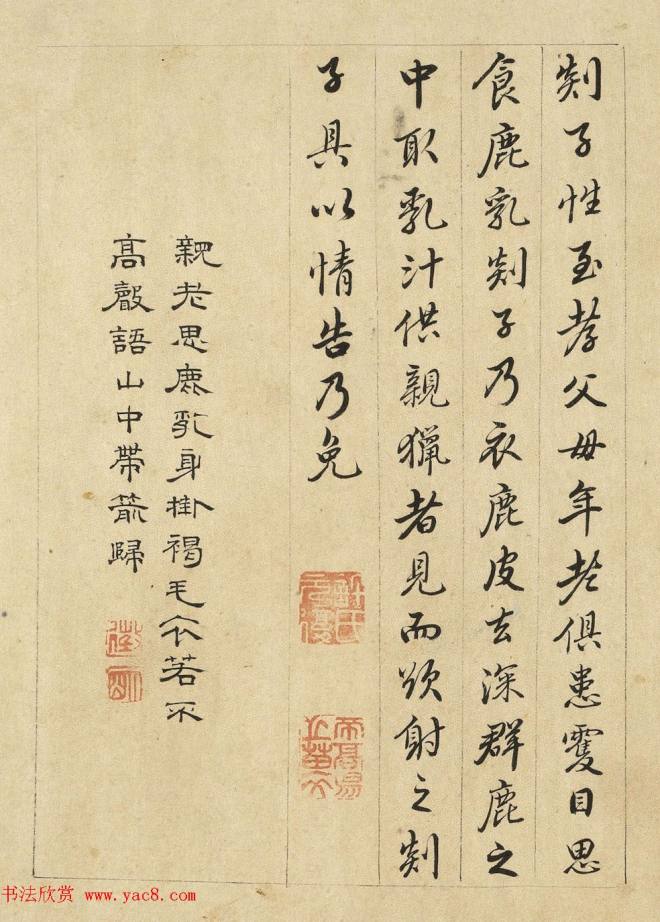 剡子性至孝父母年老俱患雙目思
食鹿乳剡子乃衣鹿皮去深群鹿之
中取乳汁供親獵者見而欲射之剡
子具以情告乃免
親老思鹿乳身掛褐毛衣若不
高聲語山中帶箭歸
徵明
书法欣赏 www.yac8.com